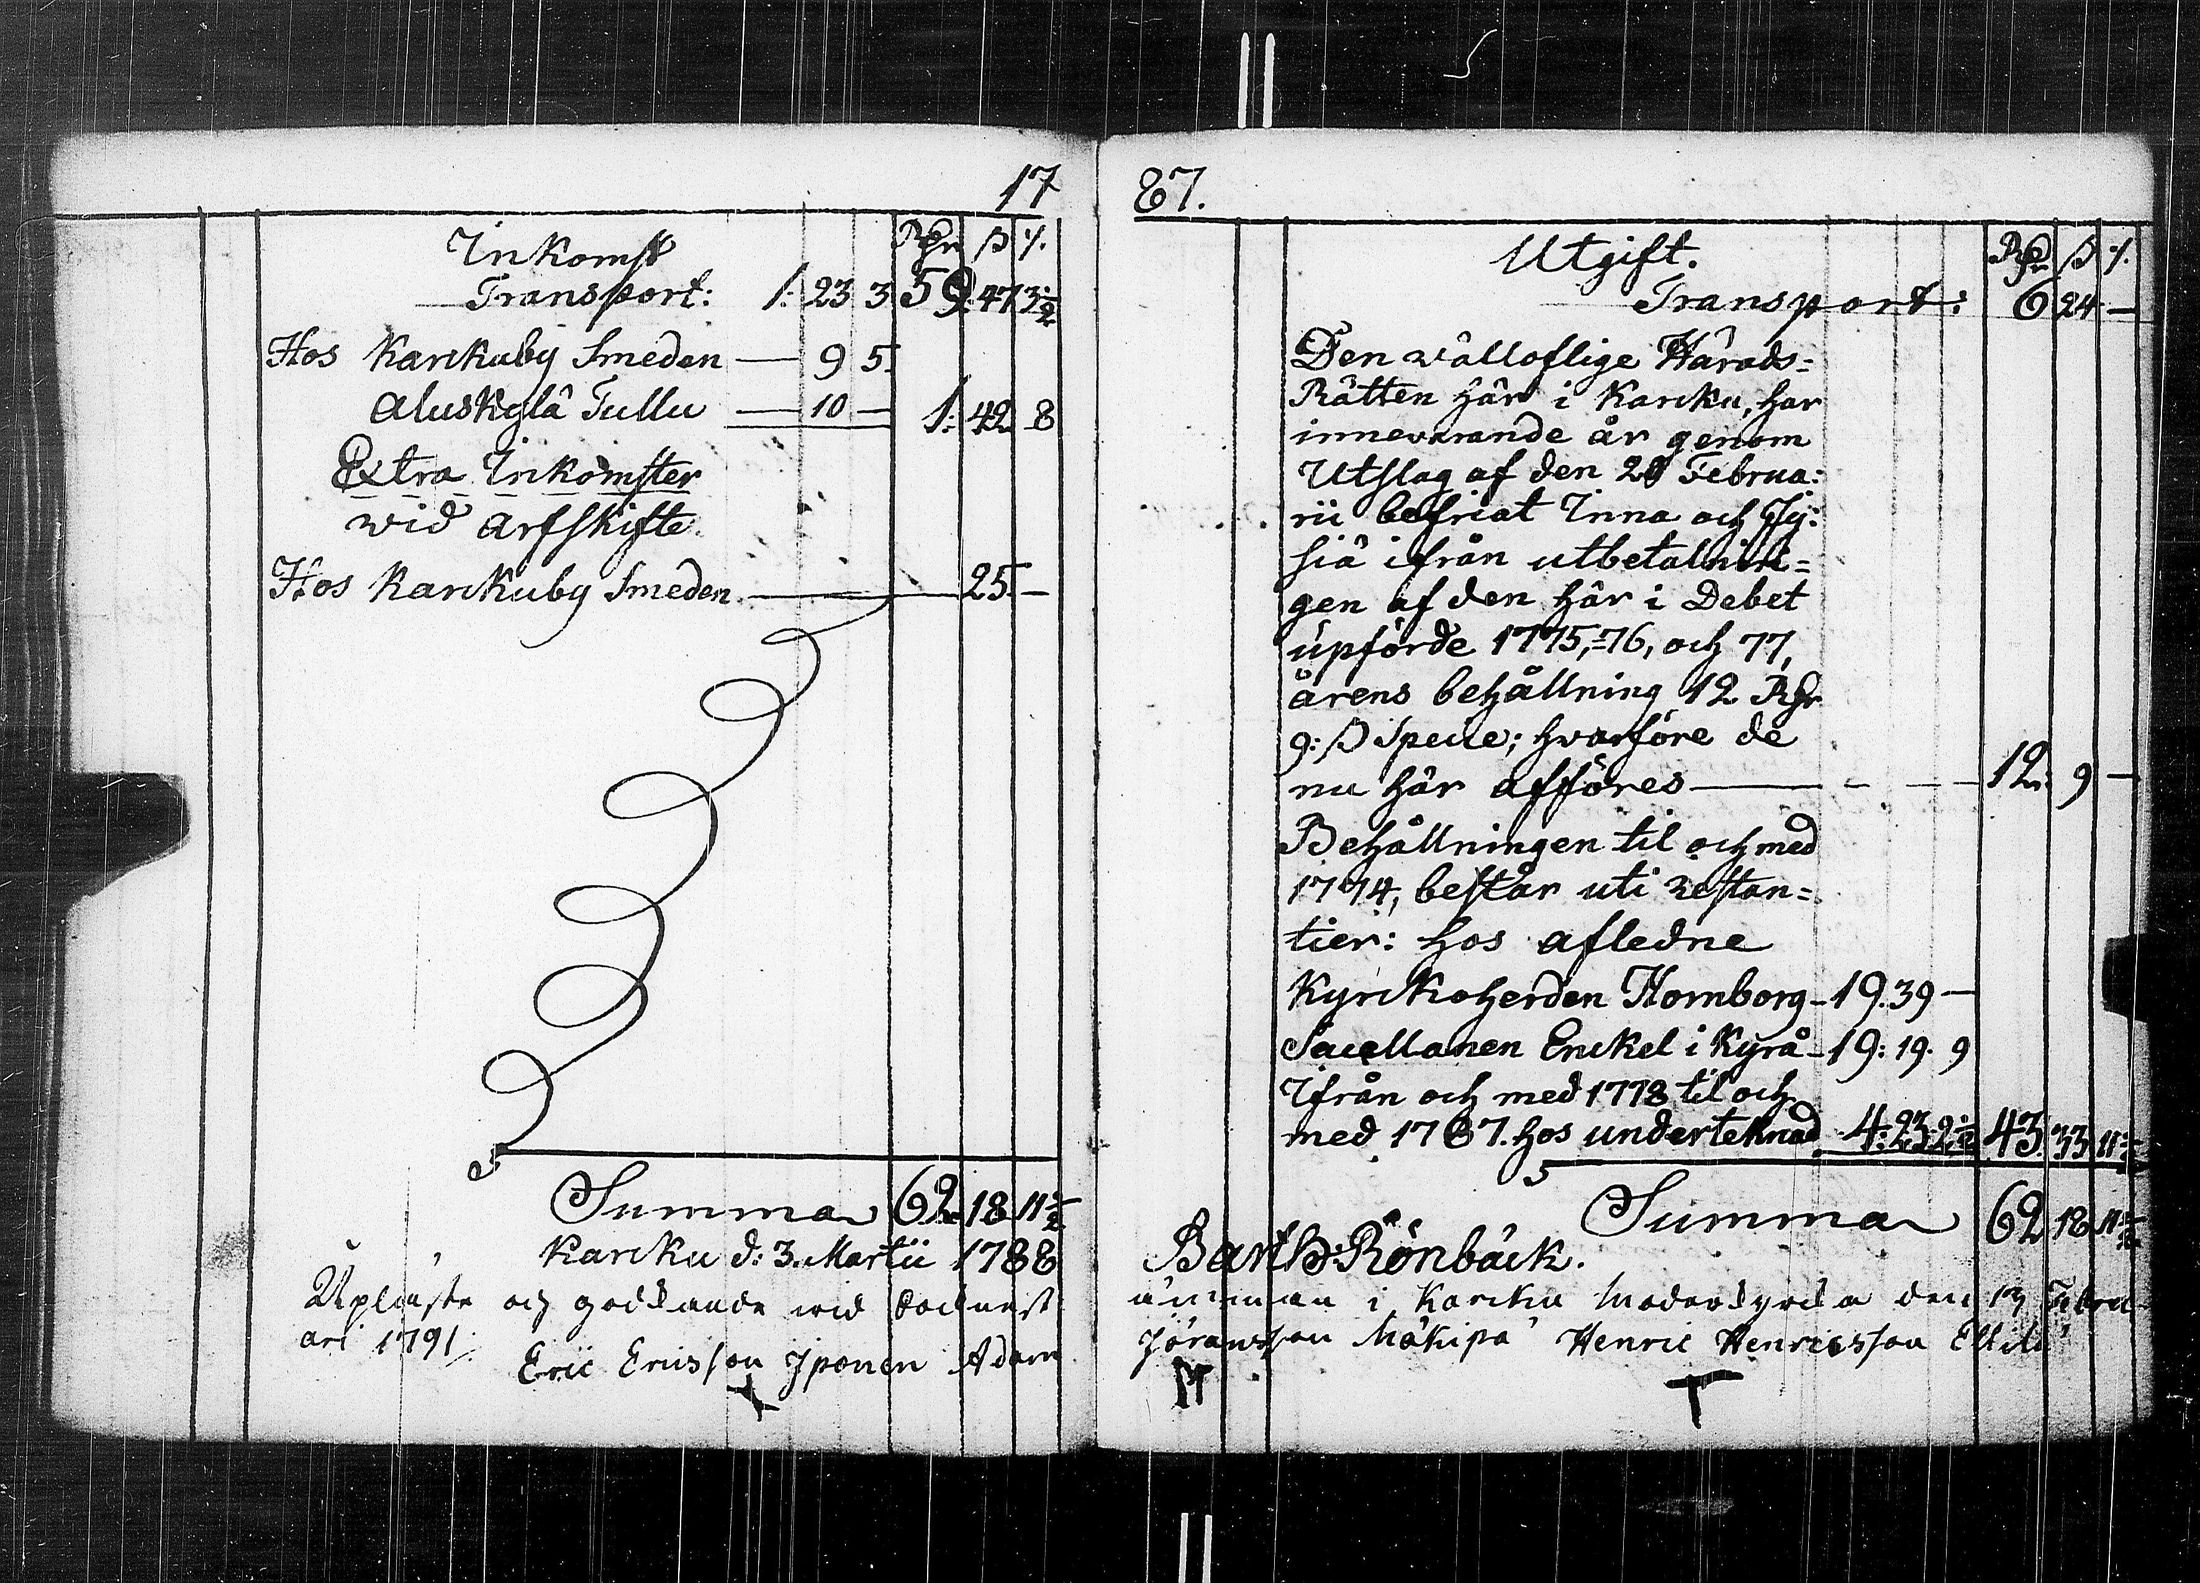 17
Inkomst
Rdr ß /.
Transport: 1: 23 3 59. 47 3½
Hos Karckuby Smeden — 9 5.
Aluskylä Tullu — 10 — 1: 42 8
Extra Inkomster
wid arfskifte.
Hos Karckuby Smeden — 25. —
Summa 62. 18 11½
Karcku d: 3. Martii 1788
Upläste och godkände wid
ari 1791/.
Eric Ericsson Iponen Adam
87.
Utgift.
Rdr ß /.
Transport: 6 24 —
Den wälloflige Härads=
Rätten här i Karcku, har
innevarande år genom
Utslag af den 28 Februa:
rii befriat Inna och Hy:
siä ifrån utbetalnin=
gen af den här i Debet
upförde 1775,=76, och 77,
årens behållning 12 Rdr
9: ß Specie; hvarföre de
nu här afföres — 12: 9 —
Behållningen til och med
1774, består uti restan=
tier: hos afledne
Kyrckoherden Hornborg - 19. 39 —
Sacellanen Enckel i Kyrå - 19: 19. 9
Ifrån och med 1778 til och
med 1787. hos underteknad 4: 23 2½ 43. 33 11½
Summa 62 18 11½
Barth: Rönbäck.
i Karcku Moderkyrcka den 13 Febru
Jöransson Mäkipä Henric Henricsson Ellilä
M